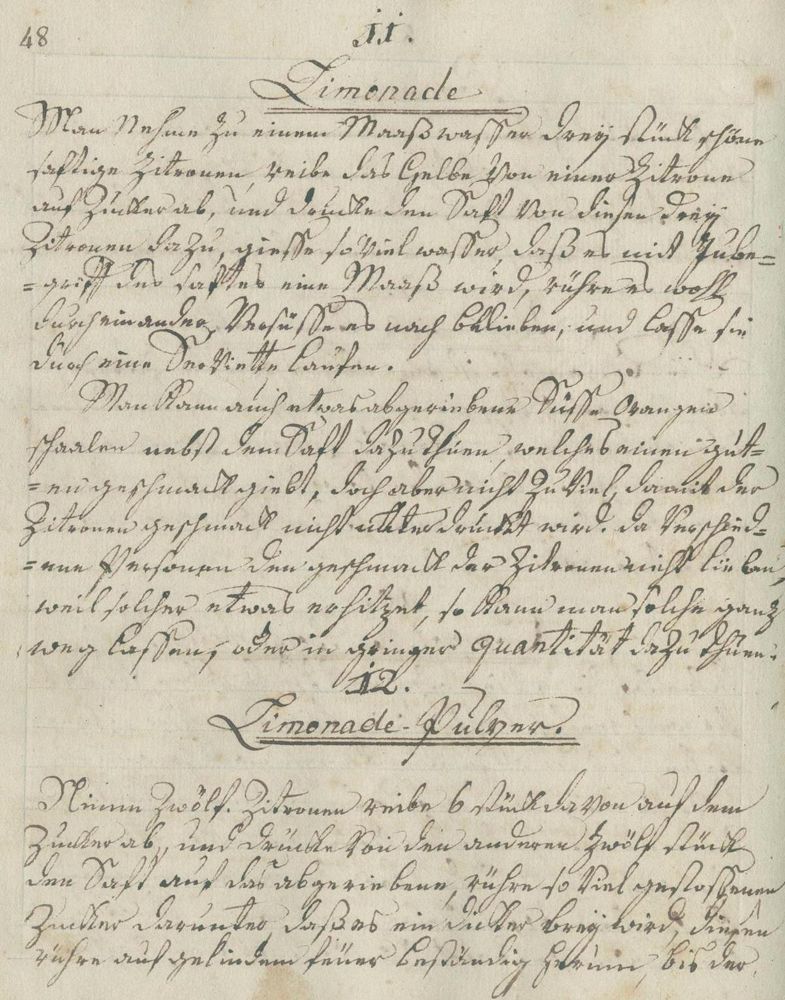 48
11.
Limonade
Man Nehme zu einem Maaß wasser drey stück schöne
saftige Zitronen, reibe das Gelbe von einer Zitrone
auf Zucker ab, und drucke den Saft von diesen drey
Zitronen dazu, giesse so viel wasser, daß es mit Jnbe=
=griff des saftes eine Maaß wird, rühre es wohl
durch einander, Versüsse es nach belieben, und lasse sie
durch eine Serviette laufen.
Man kann auch etwas abgeriebene Süsse Orangen
schaalen nebst dem Saft dazu thuen, welches einen gut=
=en geschmack giebt, doch aber nicht zu viel, damit der
Zitronen geschmack nicht unterdrückt wird. da verschied=
=ene Personen den geschmack der Zitronen nicht lieben,
weil solcher etwas erhitzet, so kann man solche ganz
weg lassen, oder in geringer quantität dazu thuen.
12.
Limonade-Pulver.
Nimm Zwölf Zitronen reibe 6 stück davon auf dem
Zucker ab, und drücke von den anderen Zwölf stück
den Saft auf das abgeriebene, rühre so viel gestossenen
Zucker darunter, daß es ein dicker brey wird, diesen
rühre auf gelindem feüer beständig herum, bis der